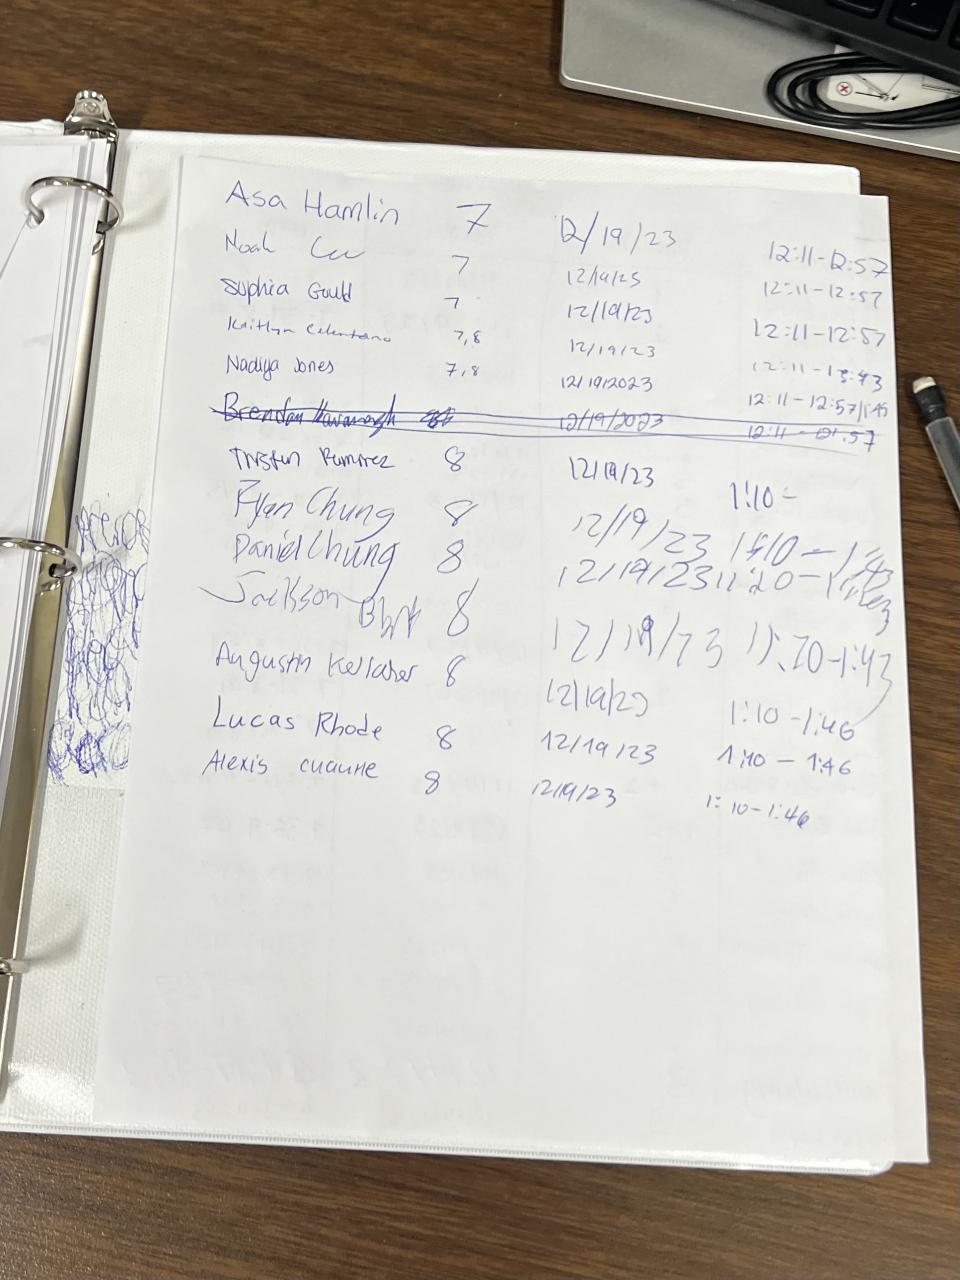 Asa Hamlin 7 12/19/23 12:11-12:57
Noah 7 12/19/23 12:11-12:57
Sophia Gould 7 12/19/23 12:11-12:57
Kaitlyn Celentano 7,8 12/19/23 12:11-
Nadiya Jones 7,8 12/19/2023 12:11-12:57/1:45
Brendan Kavanagh 12/19/2023 12:11-
Tristen Ramirez 8 12/19/23 1:10-
Ryan Chung 8 12/19/23
Daniel Chung 8 12/19/23
Jackson 8 12/19/23 -1:43
Augustin Kellaher 8 12/19/23 1:10-1:46
Lucas Rhode 8 12/19/23 1:10-1:46
Alexis 8 12/19/23 1:10-1:46